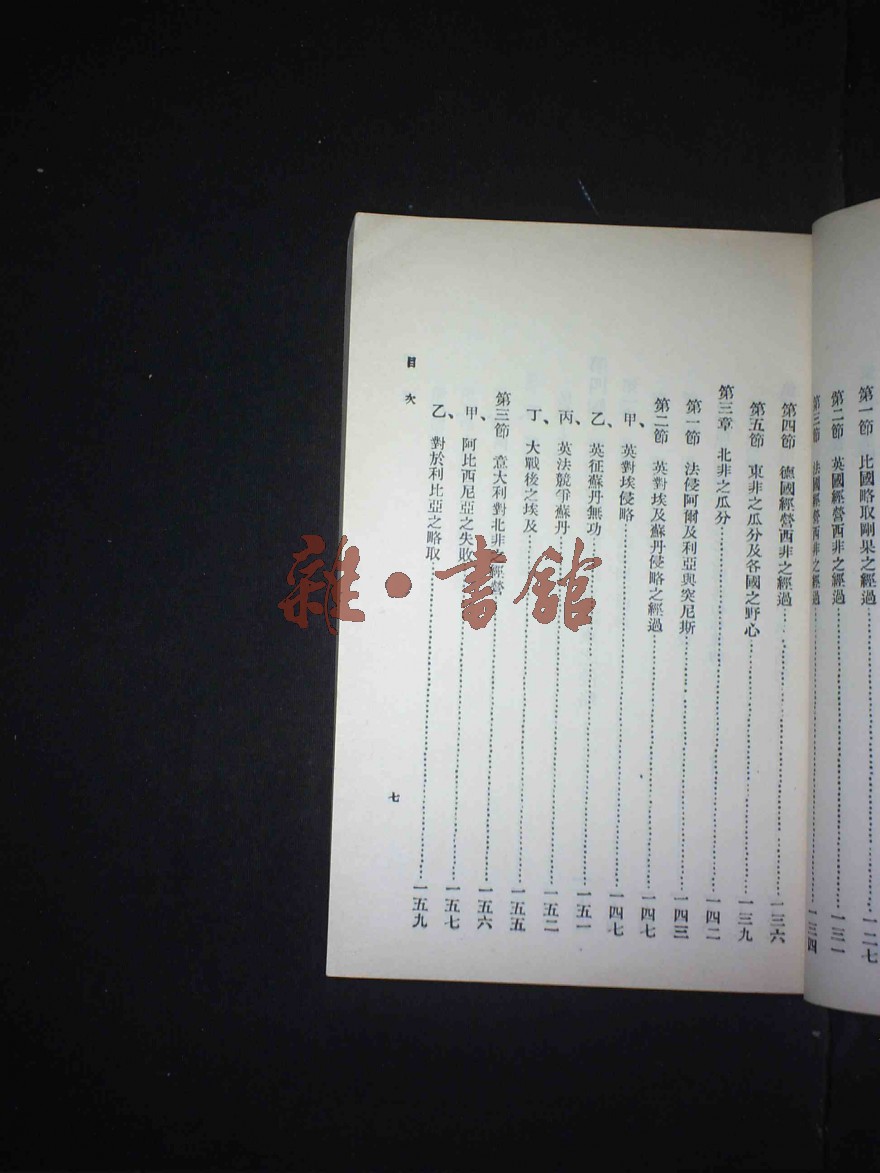 第一節 比國略取剛果之經過……一二七
第二節 英國經營西非之經過……一三一
第三節 法國經營西非之經過……一三四
第四節 德國經營西非之經過……一三六
第五節 東非之瓜分及各國之野心……一三九
第三章 北非之瓜分……一四二
第一節 法侵阿爾及利亞與突尼斯……一四三
第二節 英對埃及蘇丹侵略之經過……一四七
甲、英對埃侵略……一四七
乙、英征蘇丹無功……一五一
丙、英法競爭蘇丹……一五二
丁、大戰後之埃及……一五五
第三節 意大利對北非之經營……一五六
甲、阿比西尼亞之失敗……一五七
乙、對於利比亞之略取……一五九
目次
七
雜·書館